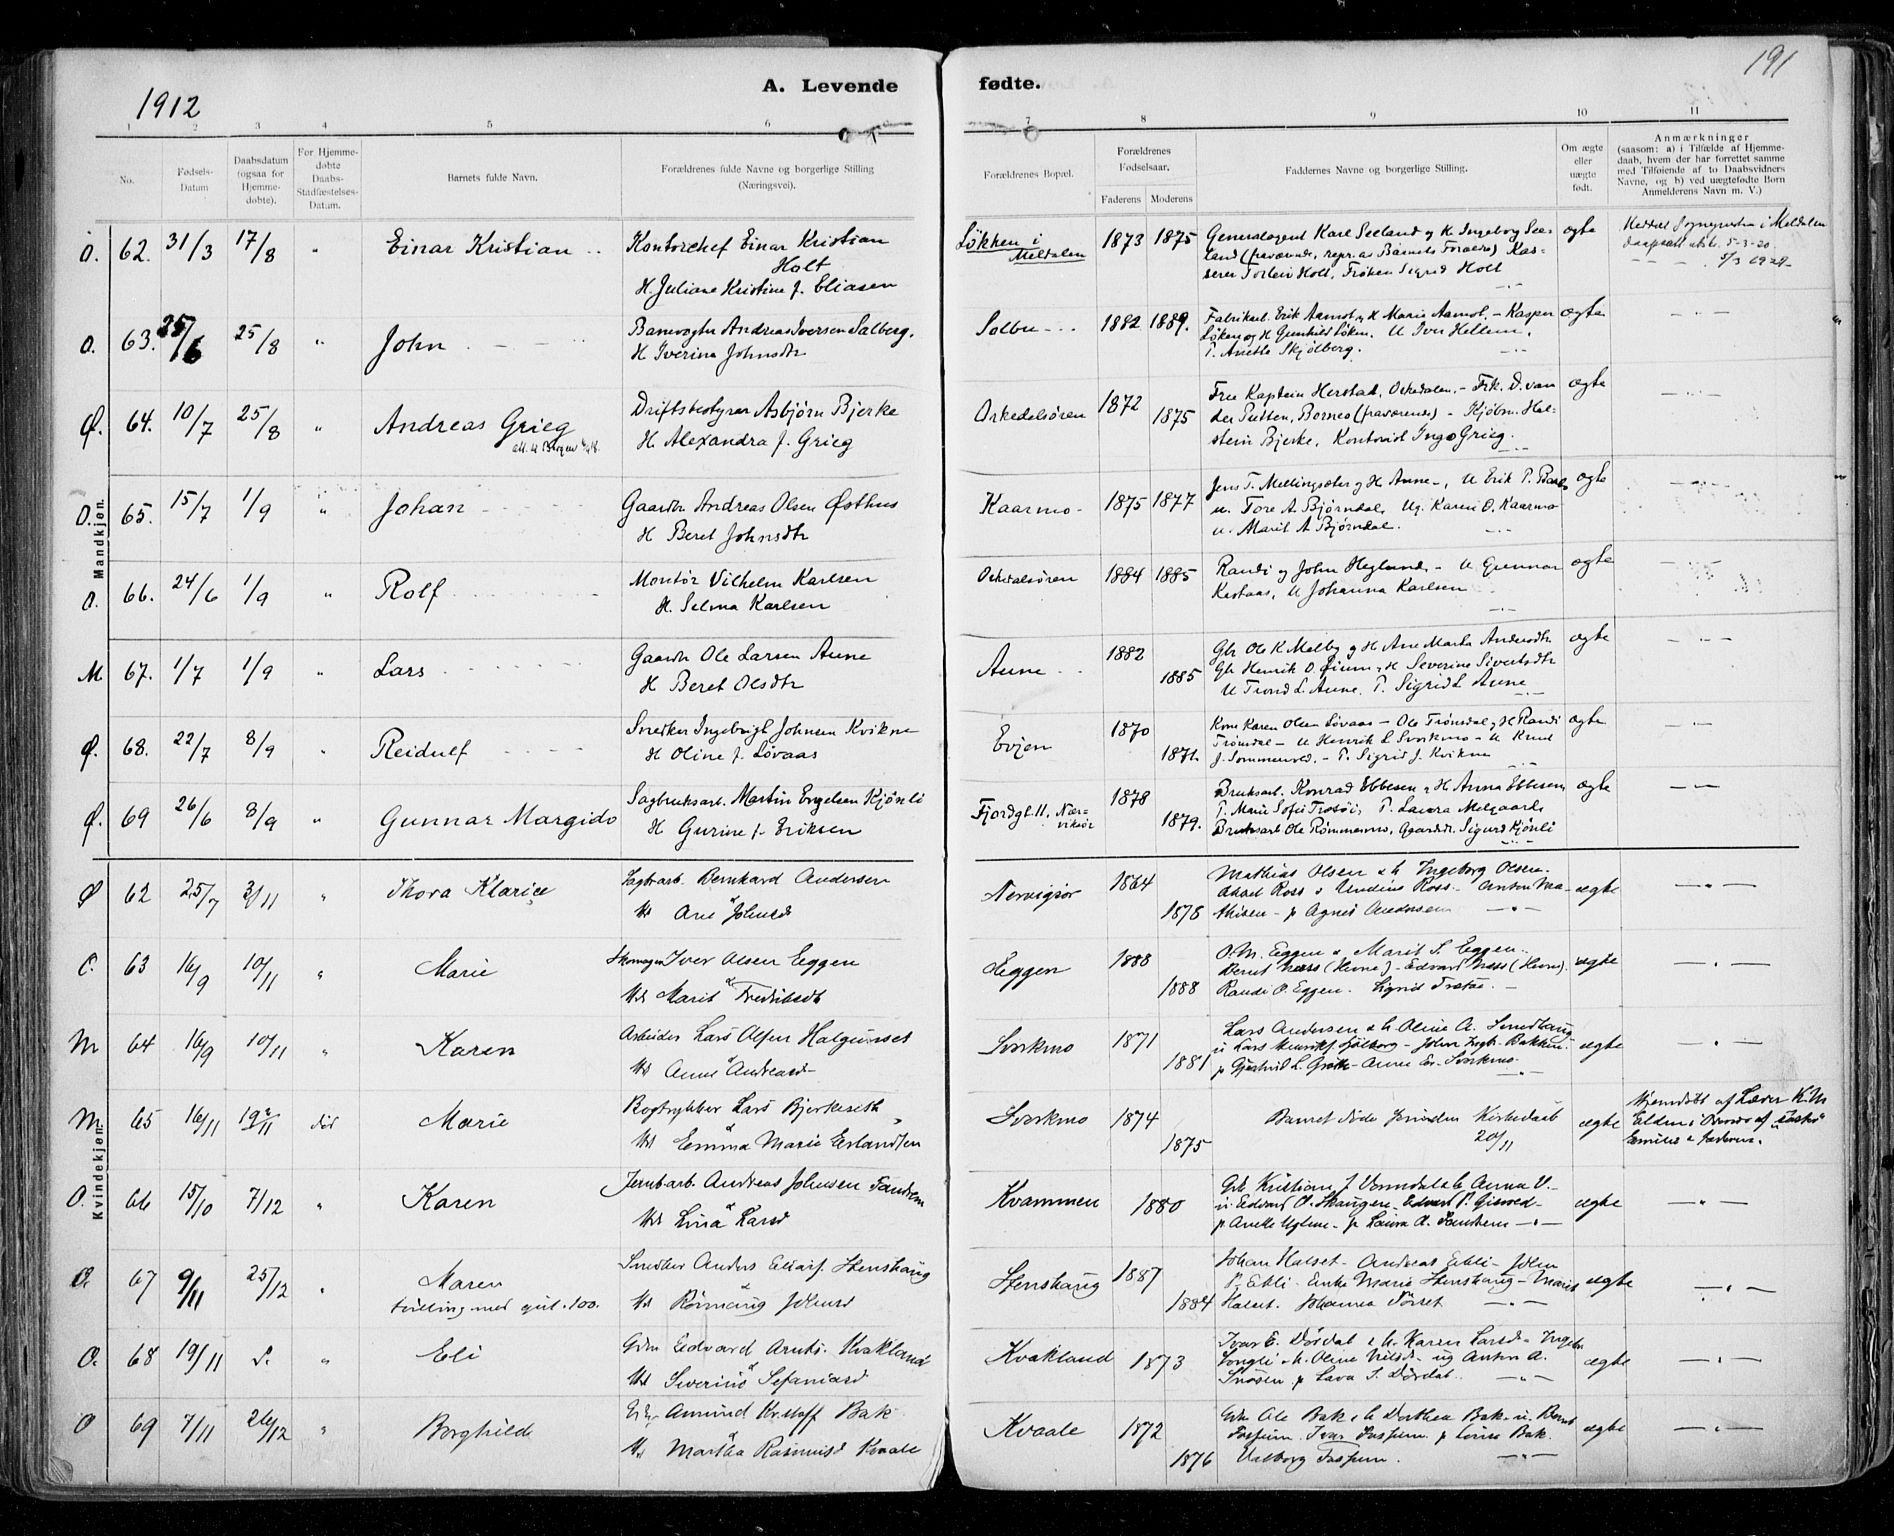 1912
A. Levende fødte.
191
1 2 3 4 5 6 7 8 9 10 11
No.
Fødsels-
Datum
Daabsdatum
(ogsaa for
Hjemme-
døbte).
For Hjemme-
døbte
Daabs-
Stadfæstelses-
Datum.
Barnets fulde Navn.
Forældrenes fulde Navne og borgerlige Stilling
(Næringsvei).
Forældrenes Bopæl.
Forældrenes
Fødselsaar.
Faderens Moderens
Faddernes Navne og borgerlige Stilling.
Om ægte
eller
uægte
født.
Anmærkninger
(saasom: a) i Tilfælde af Hjemme-
daab, hvem der har forrettet samme
med Tilføiende af to Daabsvidners
Navne, og b) ved uægtefødte Børn
Anmelderens Navn m. V.)
Mandkjøn.
O. 62. 31/3 17/8 " Einar Kristian
Kontorchef Einar Kristian
Holt
H. Juliane Kristine f. Eliasen
Løkken i
Meldalen
1873 1875
Generalagent Karl Seeland og H Ingeborg See-
land (fraværende, repr. av Barnets Forældre) Kas-
serer Torleiv Holt, Frøken Sigrid Holt
ægte
O. 63. 25/6 25/8 " John
Banevogter Andreas Iversen Salberg.
H Iverina Johnsdtr
Solbu
1882 1889.
Fabrikarb. Erik Aamot og H Marie Aamot. - Kasper
Løken og H Gunhild Løken. U Iver Hellem.
P. Anette Skjølberg.
ægte
Ø. 64. 10/7 25/8 " Andreas Grieg
Driftsbestyrer Asbjørn Bjerke
H. Alexandra f. Grieg
Orkedalsøren
1872 1875
Frue Kaptein Herstad, Orkedalen. - Frk. D. van
der Putten, Borneo (fraværende) - Kjøbm. Hal-
stein Bjerke, Kontorist Inga Grieg.
ægte
O. 65. 15/7 1/9 " Johan
Gaardbr Andreas Olsen Østhus
H Beret Johnsdtr
Kaarmo
1875 1877
Jens T. Mellingsæter og H. Anne -, U Erik P.
u. Tore A Bjørndal, Ug. Karen O. Kaarmo
u. Marit A Bjørndal.
ægte
O. 66. 24/6 1/9 " Rolf
Montør Vilhelm Karlsen
H. Selma Karlsen
Orkedalsøren
1884 1885
Randi og John Hegland - U Gunnar
U Johanna Karlsen
ægte
M 67. 1/7 1/9 " Lars
Gaardbr Ole Larsen Aune
H Beret Olsdtr
Aune
1882 1885
Gbr Ole K Melby og H Ane Marta Andersdtr
Gbr Henrik O. Øium, H Severine Sivertsdtr
U Trond L. Aune. P. Sigrid L Aune
ægte
Ø. 68. 22/7 8/9 " Reidulf
Snedker Ingebrigt Johnsen Kvikne
H Oline f. Løvaas
Evjen
1870 1871.
Kone Karen Olsen Løvaas - Ole Trønsdal og H Randi
Trønsdal - U Henrik L Svorkmo - U Knut
J. - P. Sigrid J. Kvikne
ægte
Ø. 69 26/6 8/9 " Gunnar Margido
Sagbruksarb. Martin Engelsen Kjønli
H Gurine f. Eriksen
Fjordgt. 11. Nær-
viksør
1878 1879.
Bruksarb. Konrad Ebbesen og H Anna Ebbesen
P. Marie Sofie Trøtøi, P. Laura Melgaard
Bruksarb Ole Rømmesmo, Gaardbr. Sigurd Kjønli
ægte
Kvindekjøn.
Ø 62 25/7 3/11 " Thora Klarice
Sagbrarb. Bernhard Andersen
Ane Johnsd
Nervigsør
1864 1878
Mathias Olsen & h. Ingeborg Olsen.
Ross & Undine Ross. Anton Ma-
thisen - p Agnes Andersen
ægte
O. 63 16/9 10/11 " Marie
Skomager Iver Olsen Eggen
Marit Fredriksdt
Eggen
1888 1888
O. M. Eggen & Marit S. Eggen.
Bernt Næss (Hevne) - Edvard Næss (Hevne).
Randi O. Eggen. Sigrid
ægte
M 64 16/9 10/11 " Karen
Arbeider Lars Olsen Halgunset
Anne Andreasd
Svorkmo
1871 1881
Lars Andersen & h. Oline A.
John Bakken.
Svorkmo
ægte
M 65 16/11 19/11 død Marie
Bogtrykker Lars Bjerkeseth
Emma Marie Erlandsen
Svorkmo
1874 1875
Barnet døde forinden Kirkedaab
20/11
ægte
Hjemdøbt af Lærer K. M
O. 66 15/10 7/12 " Karen
Jernb.arb. Andreas Johnsen Fandrem
Lina Larsd
Kvammen
1880
Gbr Kristian J & h Anna V. -
u. Edvard O. Skaugen - Edvard P.
p Anne - p Laura A. Fandrem
ægte
O. 67 9/11 25/12 " Maren
tvilling med gut n. 100.
Snedker Anders Stenshaug
Rønnaug Johnsd
Stenshaug
1887 1884
Johan Halset - Andreas Ebli - John
P. Ebli - Enke Marie Stenshaug - Marit
Halset. Johanna
ægte
O. 68 19/11 " Eli
Gdm Edvard Arnts. Kvakland
Severine Sefaniasd
Kvakland
1873
Ivar E. Dørdal & h. Karen Larsd -
h. Oline Nilsd - ug Anton A.
p Lava S. Dørdal.
ægte
O 69 7/11 26/12 " Borghilde
Amund Kristoff Bak
Martha Rasmusd Kvaale
Kvaale
1872 1876
Gdm Ole Bak & h Dorthea Bak - u. Bernt
p Louise Bak.
Valborg
ægte